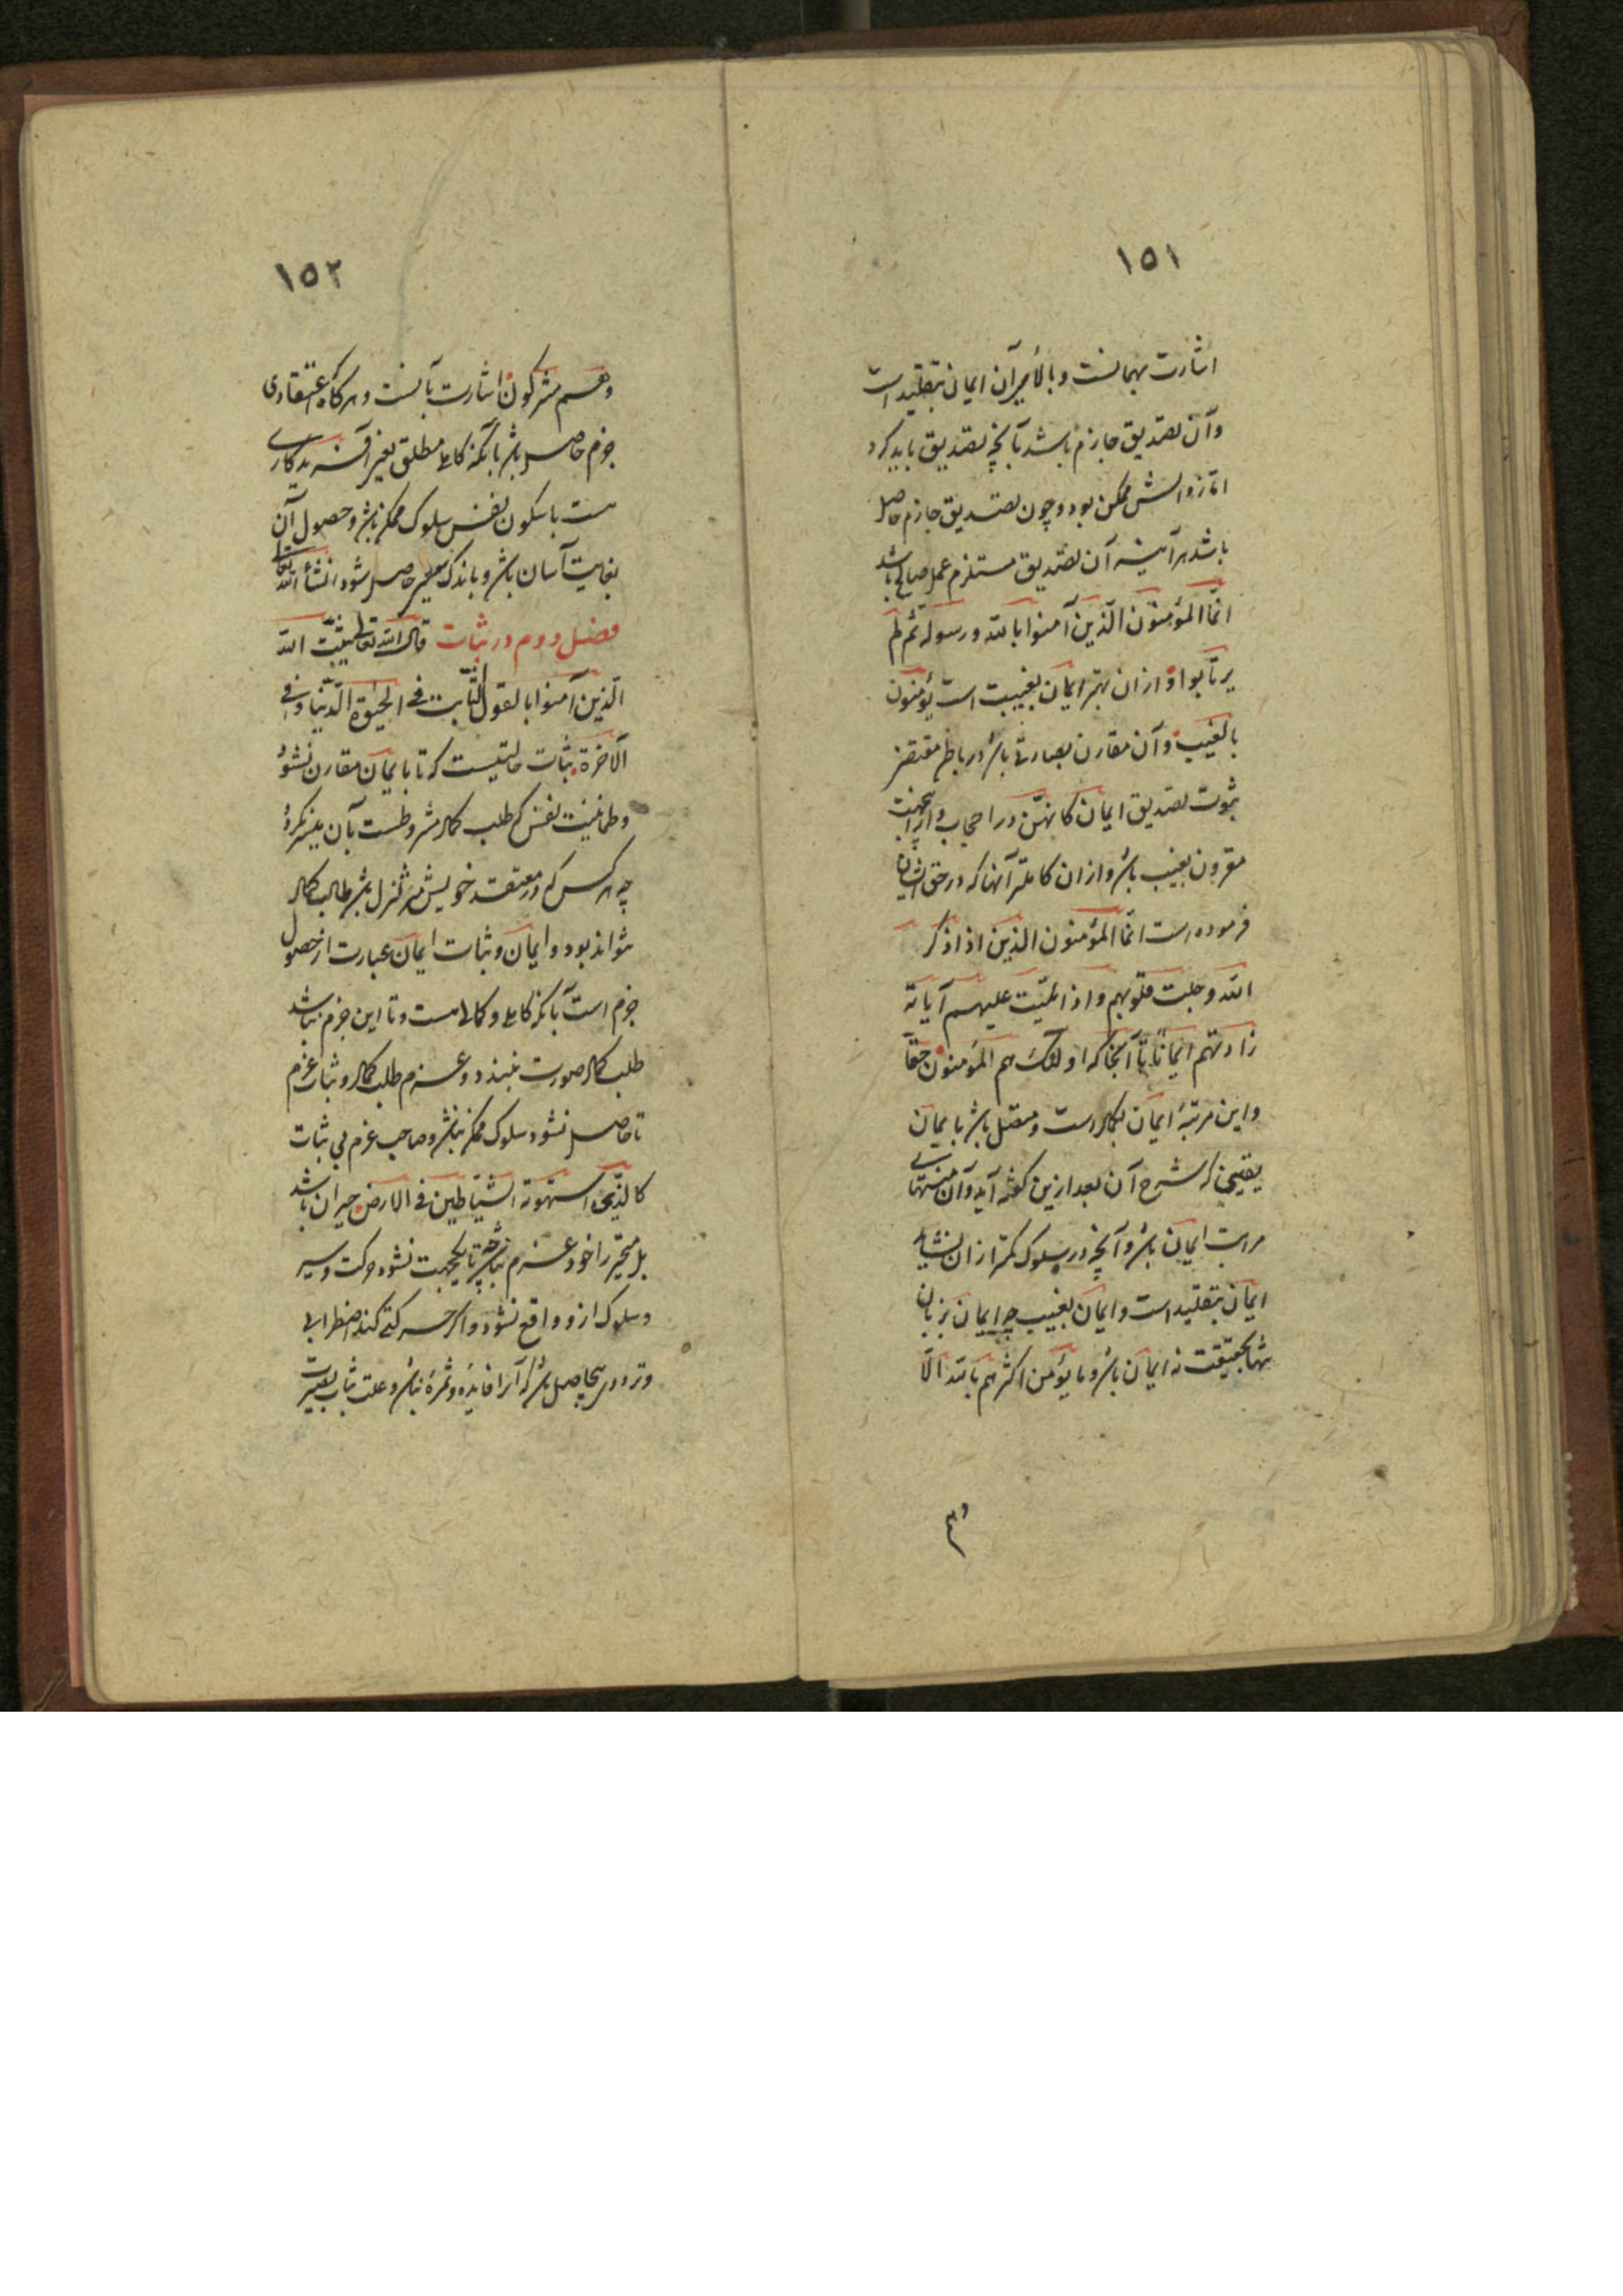 ١٥١
اشارت بهمانست وبالای آن ایمان بتقلید است
وآن تصدیق جازم باشد بآنچه تصدیق باید کرد
اما زوالش ممکن بود وچون تصدیق جازم حاصل
باشد هرآینه آن تصدیق مستلزم عمل صالح باشد
انّما المؤمنون الّذین آمنوا بالله ورسوله ثمّ لم
یرتابوا وازان بهتر ایمان بغیبست است یؤمنون
بالغیب وآن مقارن بصارتی باشد در باطن مقتضی
ثبوت تصدیق ایمان کانهّ من وراء حجاب وازینجهت
مقرون بغیب باشد وازان کاملتر آنها که در حق ایشان
فرموده است انّما المؤمنون الذین اذا ذکر
الله وجلت قلوبهم واذا تلیت علیهم آیاته
زادتهم ایماناً تا آنجا که اولئک هم المؤمنون حقاً
واین مرتبهٔ ایمان بکمال است ومتصل باشد بایمان
یقینی که شرح آن بعد ازین گفته آید وآن منتهای
مراتب ایمان باشد وآنچه در سلوک کمتر ازان نشاید
ایمان بتقلید است وایمان بغیب چه ایمان بزبان
تنها بحقیقت نه ایمان باشد وما یؤمن اکثرهم بالله الّا
وهم
١٥٢
وهم مشرکون اشارت بآنست وهرگاه اعتقادی
جزم حاصل باشد بآنکه کاملی مطلق یعنی آفریدگاری
هست با سکون نفس سلوک ممکن باشد وحصول آن
بغایت آسان باشد وباندک سعیی حاصل شود انشاء الله تعالی
فصل دوم در ثبات قال الله تعالی یثبّت الله
الّذین آمنوا بالقول الثّابت فی الحیوة الدّنیا وفی
الآخرة ثبات حالتیست که تا بایمان مقارن نشود
وطمانینت نفس که طلب کمال مشروطست بآن میسر نگردد
چه هر کس که در معتقد خویش متزلزل باشد طالب کمال
نتواند بود وایمان وثبات ایمان عبارت از حصول
جزم است بآنکه کاملی وکمالی هست وتا این جزم نباشد
طلب کمال صورت نبندد وعزم طلب کمال وثبات عزم
تا حاصل نشود سلوک ممکن نباشد وصاحب عزم بی ثبات
کالّذی استهوته الشّیاطین فی الارض حیران باشد
بل متحیر را خود عزم نباشد وتا یکجهت نشود حرکت وسیر
وسلوک ازو واقع نشود واگر حرکتی کند اضطرابی
وترددی بیحاصل باشد که آنرا فایده وثمرهٔ نباشد وعلت ثبات بصیرت